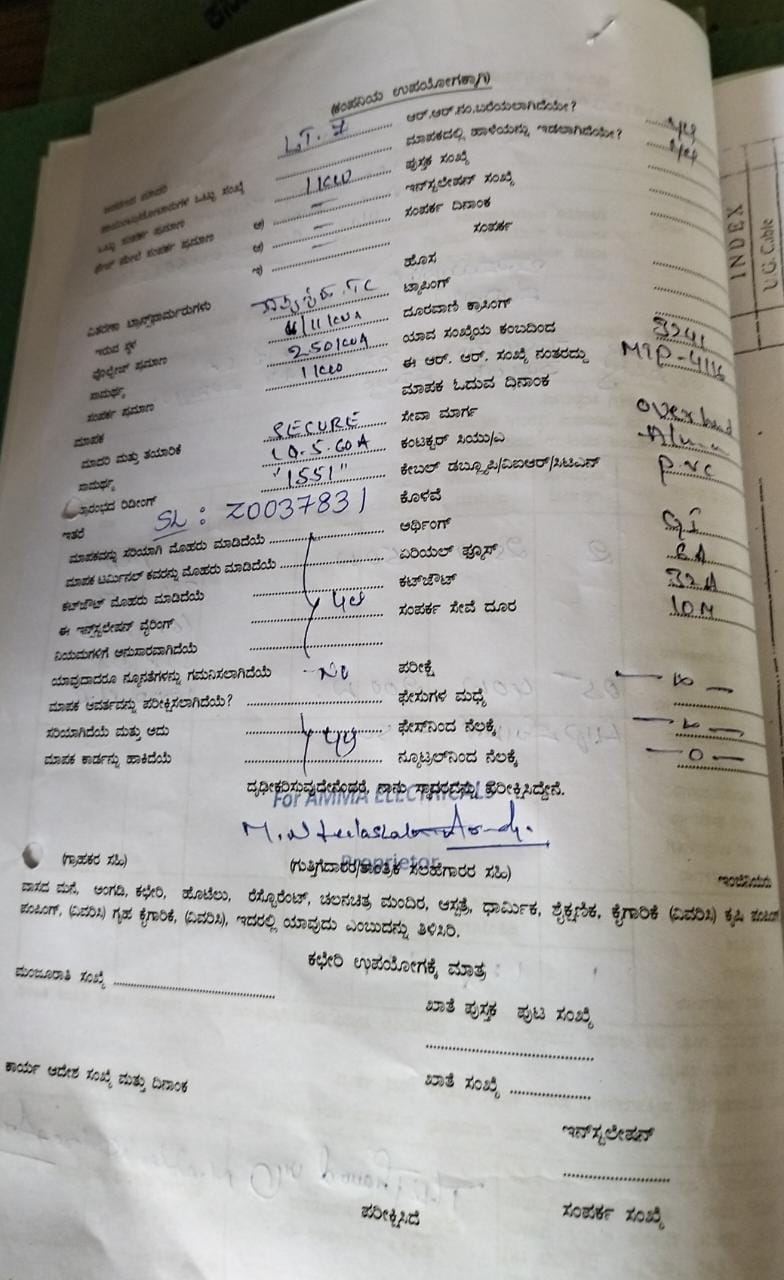 (ಕಂಪನಿಯ ಉಪಯೋಗಕ್ಕಾಗಿ)
LT. 7 ಆರ್.ಆರ್.ನಂ.ಬರೆಯಲಾಗಿದೆಯೇ?
ಮಾಪಕದಲ್ಲಿ ಹಾಳೆಯನ್ನು ಇಡಲಾಗಿದೆಯೇ?
ಒಟ್ಟು ಸಂಖ್ಯೆ 11KW ಪುಸ್ತಕ ಸಂಖ್ಯೆ
ಒಟ್ಟು ಸಂಪರ್ಕ ಪ್ರಮಾಣ ಅ) – ಇನ್‌ಸ್ಟಲೇಷನ್ ಸಂಖ್ಯೆ
ಮೇಲೆ ಸಂಪರ್ಕ ಪ್ರಮಾಣ ಆ) – ಸಂಪರ್ಕ ದಿನಾಂಕ
ಇ) – ಸಂಪರ್ಕ
ಹೊಸ
ವಿತರಣಾ ಟ್ರಾನ್ಸ್‌ಫಾರ್ಮರುಗಳು TC ಟ್ಯಾಪಿಂಗ್
ಇರುವ ಸ್ಥಳ ದೂರವಾಣಿ ಕ್ರಾಸಿಂಗ್
ವೊಲ್ಟೇಜ್ ಪ್ರಮಾಣ 250KVA ಯಾವ ಸಂಖ್ಯೆಯ ಕಂಬದಿಂದ 3241
ಸಾಮರ್ಥ್ಯ 11KW ಈ ಆರ್. ಆರ್. ಸಂಖ್ಯೆ ನಂತರದ್ದು MTP-4116
ಸಂಪರ್ಕ ಪ್ರಮಾಣ ಮಾಪಕ ಓದುವ ದಿನಾಂಕ
ಮಾಪಕ SECURE ಸೇವಾ ಮಾರ್ಗ
ಮಾದರಿ ಮತ್ತು ತಯಾರಿಕೆ 10.5.60A ಕಂಟಕ್ಟರ್ ಸಿಯು/ಎ
ಸಾಮರ್ಥ್ಯ "1551" ಕೇಬಲ್ ಡಬ್ಲ್ಯೂಪಿ/ವಿಐಆರ್/ಸಿಟಿಎಸ್ PVC
ಪ್ರಾರಂಭದ ರಿಡೀಂಗ್ SL: Z0037831 ಕೊಳವೆ
ಇತರೆ ಅರ್ಥಿಂಗ್ GI
ಮಾಪಕವನ್ನು ಸರಿಯಾಗಿ ಮೊಹರು ಮಾಡಿದೆಯೆ ಏರಿಯಲ್ ಫ್ಯೂಸ್
ಮಾಪಕ ಟರ್ಮಿನಲ್ ಕವರನ್ನು ಮೊಹರು ಮಾಡಿದೆಯೆ ಕಟ್‌ಔಟ್ 32A
ಕಟ್‌ಔಟ್ ಮೊಹರು ಮಾಡಿದೆಯೆ ಸಂಪರ್ಕ ಸೇವೆ ದೂರ 10M
ಈ ಇನ್‌ಸ್ಟಲೇಷನ್ ವೈರಿಂಗ್
ನಿಯಮಗಳಿಗೆ ಅನುಸಾರವಾಗಿದೆಯೆ
ಯಾವುದಾದರೂ ನ್ಯೂನತೆಗಳನ್ನು ಗಮನಿಸಲಾಗಿದೆಯೆ No ಪರೀಕ್ಷೆ
ಮಾಪಕ ಆವರ್ತವನ್ನು ಪರೀಕ್ಷಿಸಲಾಗಿದೆಯೆ? ಫೇಸುಗಳ ಮಧ್ಯೆ
ಸರಿಯಾಗಿದೆಯೆ ಮತ್ತು ಅದು ಫೇಸ್‌ನಿಂದ ನೆಲಕ್ಕೆ
ಮಾಪಕ ಕಾರ್ಡನ್ನು ಹಾಕಿದೆಯೆ ನ್ಯೂಟ್ರಲ್‌ನಿಂದ ನೆಲಕ್ಕೆ – 0 –
ದೃಢೀಕರಿಸುವುದೇನೆಂದರೆ, ನಾನು ಸ್ಥಾವರವನ್ನು ಪರೀಕ್ಷಿಸಿದ್ದೇನೆ.
For AMMA ELECTRICALS
Proprietor
(ಗ್ರಾಹಕರ ಸಹಿ) (ಗುತ್ತಿಗೆದಾರರ/ತಾಂತ್ರಿಕ ಸಲಹೆಗಾರರ ಸಹಿ) ಇಂಜಿನಿಯರು
ವಾಸದ ಮನೆ, ಅಂಗಡಿ, ಕಛೇರಿ, ಹೊಟೆಲು, ರೆಸ್ಟೊರೆಂಟ್, ಚಲನಚಿತ್ರ ಮಂದಿರ, ಆಸ್ಪತ್ರೆ, ಧಾರ್ಮಿಕ, ಶೈಕ್ಷಣಿಕ, ಕೈಗಾರಿಕೆ (ವಿವರಿಸಿ) ಕೃಷಿ ಪಂಪಿಂಗ್
ಪಂಪಿಂಗ್, (ವಿವರಿಸಿ) ಗೃಹ ಕೈಗಾರಿಕೆ, (ವಿವರಿಸಿ), ಇದರಲ್ಲಿ ಯಾವುದು ಎಂಬುದನ್ನು ತಿಳಿಸಿರಿ.
ಕಛೇರಿ ಉಪಯೋಗಕ್ಕೆ ಮಾತ್ರ
ಮಂಜೂರಾತಿ ಸಂಖ್ಯೆ ಖಾತೆ ಪುಸ್ತಕ ಪುಟ ಸಂಖ್ಯೆ
ಕಾರ್ಯ ಆದೇಶ ಸಂಖ್ಯೆ ಮತ್ತು ದಿನಾಂಕ ಖಾತೆ ಸಂಖ್ಯೆ
ಇನ್‌ಸ್ಟಲೇಷನ್
ಪರೀಕ್ಷಿಸಿದೆ ಸಂಪರ್ಕ ಸಂಖ್ಯೆ
INDEX
U.G. Cable